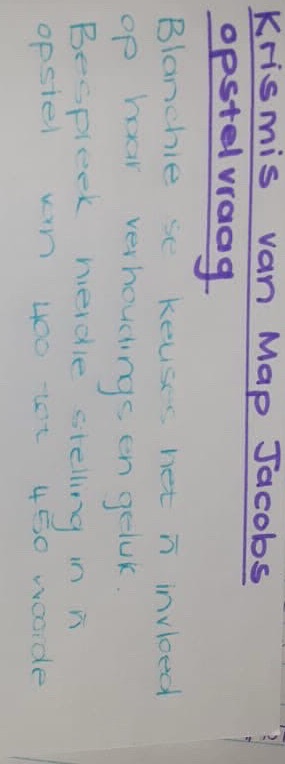 Krismis van Map Jacobs
opstelvraag
Blanchie se keuses het ń invloed
op haar verhoudings en geluk.
Bespreek hierdie stelling in ń
opstel van 400 tot 450 woorde